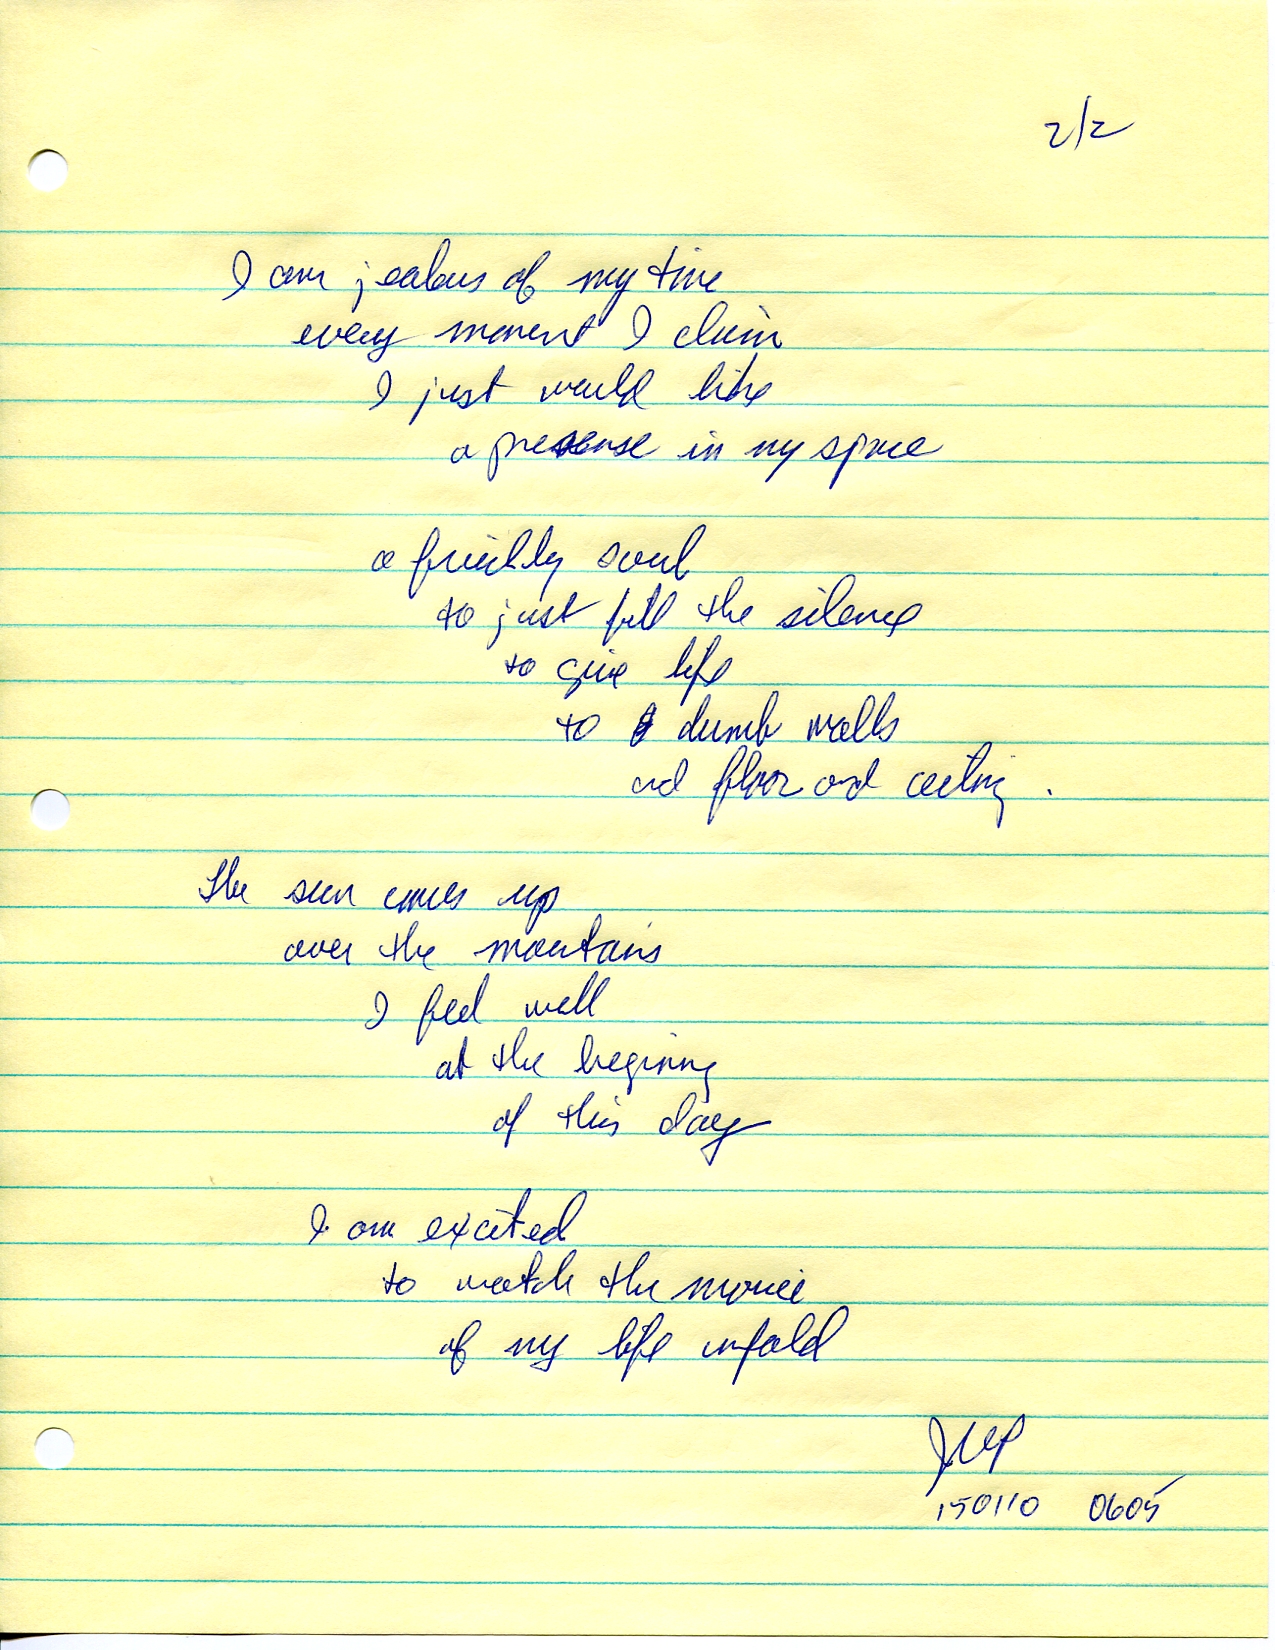 2/2
I am jealous of my time
every moment I claim
I just would like
a presense in my space
a friendly soul
to just fill the silence
to give life
to dumb walls
and floor and ceiling .
The sun comes up
over the mountains
I feel well
at the beginning
of this day
I am excited
to watch the movie
of my life unfold
150110 0605